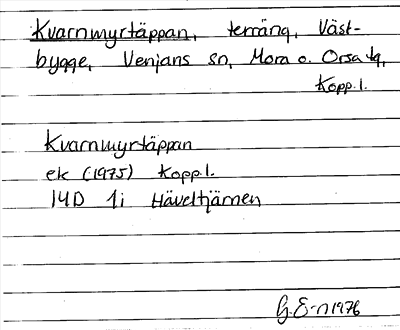 Kvarnmyrtäppan, terräng, Väst-
bygge, Venjans sn, Mora o. Orsa tg,
Kopp.l.
Kvarnmyrtäppan
ek (1975) Kopp.l.
14D 1i Häveltjärnen
G.E-n 1976